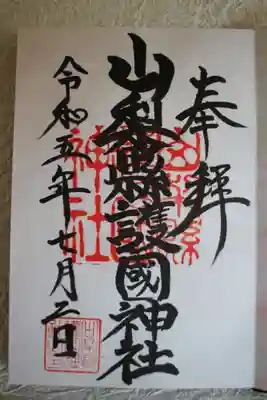 奉拝
山梨縣護國神社
令和五年七月二日